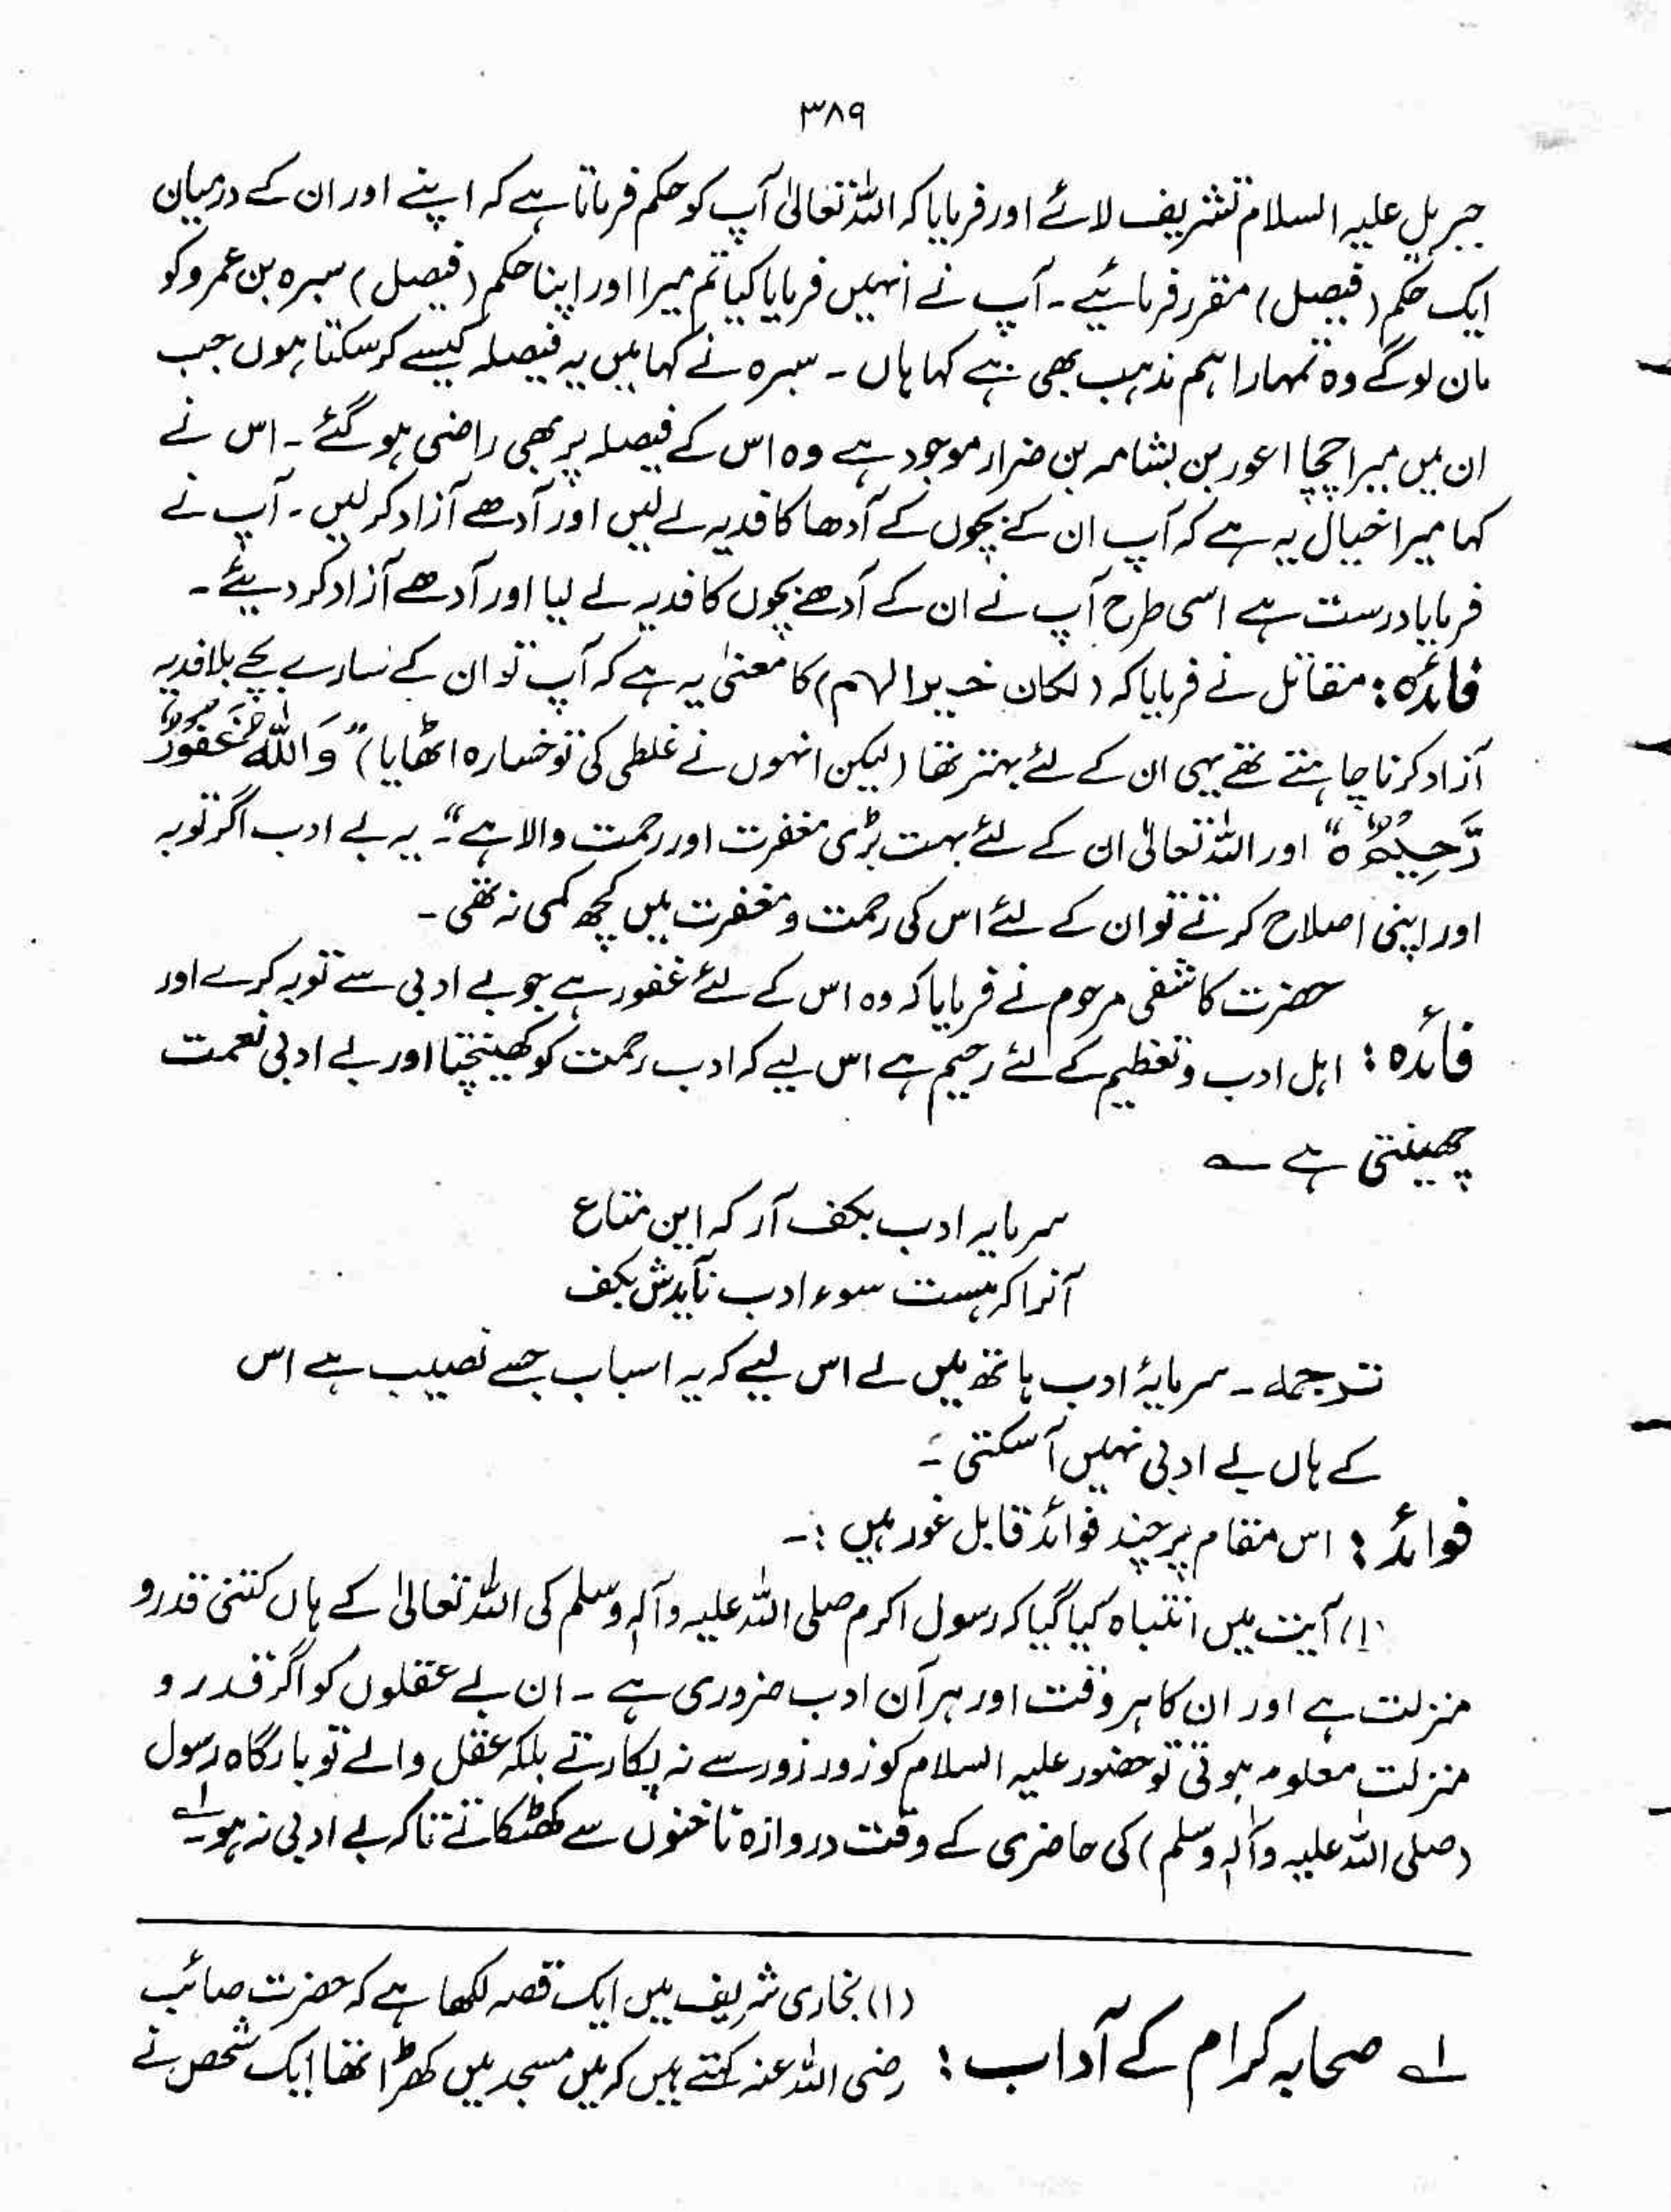 ۳۸۹
جبریل علیہ السلام تشریف لائے اور فرمایا کہ اللہ تعالیٰ آپ کو حکم فرماتا ہے کہ اپنے اور ان کے درمیان
ایک حکم (فیصل) مقرر فرمائیے۔ آپ نے انہیں فرمایا کیا تم میرا اور اپنا حکم (فیصل) سبرہ بن عمرو کو
مان لوگے وہ تمہارا ہم مذہب بھی ہے کہا ہاں۔ سبرہ نے کہا میں یہ فیصلہ کیسے کرسکتا ہوں جب
ان میں میرا چچا اعور بن بشامہ بن ضرار موجود ہے وہ اس کے فیصلہ پر بھی راضی ہو گئے۔ اس نے
کہا میرا خیال یہ ہے کہ آپ ان کے بچوں کے آدھا کا فدیہ لے لیں اور آدھے آزاد کر لیں۔ آپ نے
فرمایا درست ہے اسی طرح آپ نے ان کے آدھے بچوں کا فدیہ لے لیا اور آدھے آزاد کر دیئے۔
فائدہ: مقاتل نے فرمایا کہ (لکان خیرا لہم) کا معنیٰ یہ ہے کہ آپ تو ان کے سارے بچے بلا فدیہ
آزاد کرنا چاہتے تھے یہی ان کے لئے بہتر تھا (لیکن انہوں نے غلطی کی تو خسارہ اٹھایا) “وَاللّٰهُ غَفُوْرٌ
رَّحِيْمٌ ہ“ اور اللہ تعالیٰ ان کے لئے بہت بڑی مغفرت اور رحمت والا ہے“۔ یہ بے ادب اگر توبہ
اور اپنی اصلاح کرتے تو ان کے لئے اس کی رحمت و مغفرت میں کچھ کمی نہ تھی۔
حضرت کاشفی مرحوم نے فرمایا کہ وہ اس کے لئے غفور ہے جو بے ادبی سے توبہ کرے اور
فائدہ: اہل ادب و تعظیم کے لئے رحیم ہے اس لیے کہ ادب رحمت کو کھینچتا اور بے ادبی نعمت
چھینتی ہے ؎
سرمایہ ادب بکف آر کہ این متاع
آنرا کہ ہست سوء ادب نآیدش بکف
ترجمہ۔ سرمایۂ ادب ہاتھ میں لے اس لیے کہ یہ اسباب جسے نصیب ہے اس
کے ہاں بے ادبی نہیں آسکتی۔
فوائد: اس مقام پر چند فوائد قابل غور ہیں :۔
(۱) آیت میں انتباہ کیا گیا کہ رسول اکرم صلی اللہ علیہ وآلہ وسلم کی اللہ تعالیٰ کے ہاں کتنی قدر و
منزلت ہے اور ان کا ہر وقت اور ہر آن ادب ضروری ہے۔ ان بے عقلوں کو اگر قدر و
منزلت معلوم ہوتی تو حضور علیہ السلام کو زور زور سے نہ پکارتے بلکہ عقل والے تو بارگاہ رسول
(صلی اللہ علیہ وآلہ وسلم) کی حاضری کے وقت دروازہ ناخنوں سے کھٹکاتے تاکہ بے ادبی نہ ہو۔ ۱؎
۱؎ صحابہ کرام کے آداب: (۱) بخاری شریف میں ایک قصہ لکھا ہے کہ حضرت صائب
رضی اللہ عنہ کہتے ہیں کہ میں مسجد میں کھڑا تھا ایک شخص نے